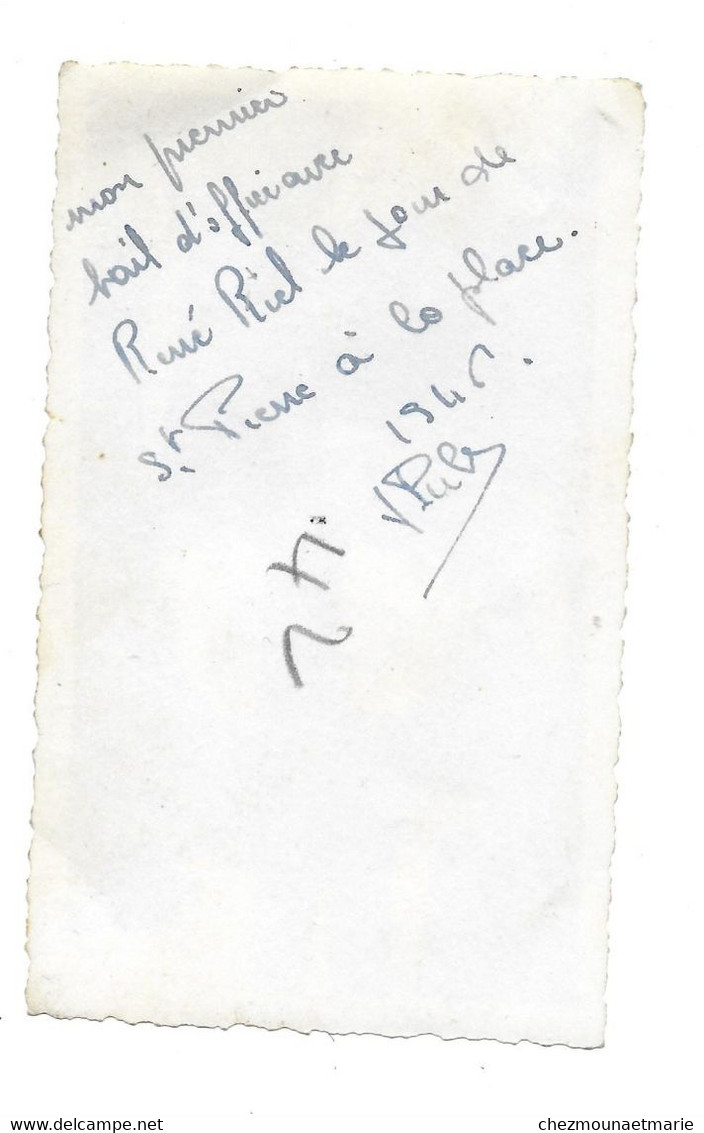 mon premier
bail d'affinance
René Riel le jour de
St. Pierre à la place.
194
24
delcampe.net
chezmounaetmarie